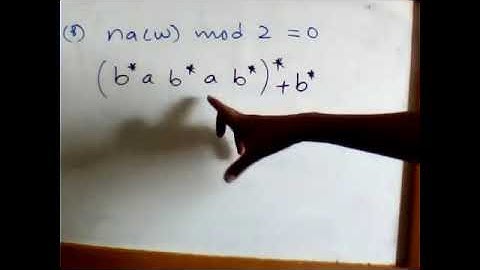 (8) na(w) mod 2 = 0
(b* a b* a b*)* + b*